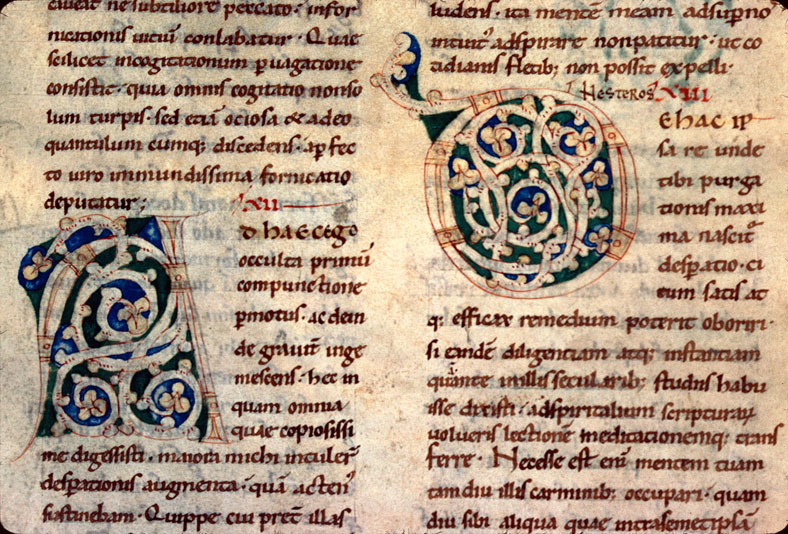 caveat ne subtiliore peccato · infor
nicationis viciū conlabatur · Quae
scilicet in cogitationum p̱vagatione
consistit · quia omnis cogitatio non so
lum turpis · sed etiā ociosa & a deo
quantulum cumq; discedens · a p̱fec
to viro immundissima fornicatio
deputatur ;
XII
D HAEC EGO
occulta primū
compunctione
p̱motus · ac dein
de gravit̄ inge
mescens · hec in
quam omnia
quae copiosissi
me digessisti · maiora michi intuler̄
desp̱ationis augmenta · quā acten⁹
sustinebam · Quippe cui pret̄ illas
ludens · ita mentē meam ad sup̱no
intuit⁹ adspirare non patitur · ut co
tidianis fletib; non possit expelli ·
NESTEROS XIII
E HAC IP
sa re unde
tibi purga
tionis maxi
ma nascit̄
desp̱atio · ci
tum satis at
q; efficax remedium poterit oboriri ·
si eandē diligentiam atq; instantiam
quā te in illis secularib; studiis habu
isse dixisti · ad spiritalium scripturaꝝ
volueris lectionē meditationemq; trans
ferre · Necesse est eni mentem tuam
tam diu illis carminib; occupari · quam
diu sibi aliqua quae intra semet ipsā